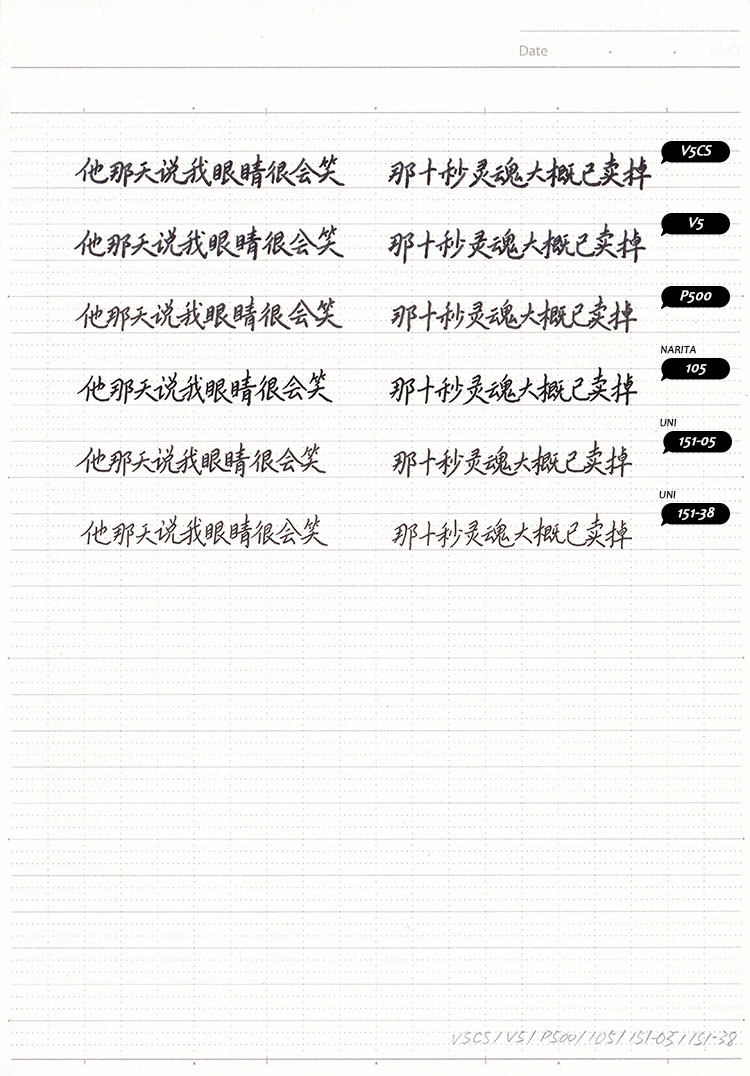 Date
他那天说我眼睛很会笑 那十秒灵魂大概已卖掉 V5CS
他那天说我眼睛很会笑 那十秒灵魂大概已卖掉 V5
他那天说我眼睛很会笑 那十秒灵魂大概已卖掉 P500
NARITA
他那天说我眼睛很会笑 那十秒灵魂大概已卖掉 105
UNI
他那天说我眼睛很会笑 那十秒灵魂大概已卖掉 151-05
UNI
他那天说我眼睛很会笑 那十秒灵魂大概已卖掉 151-38
V5CS/V5/P500/105/151-05/151-38